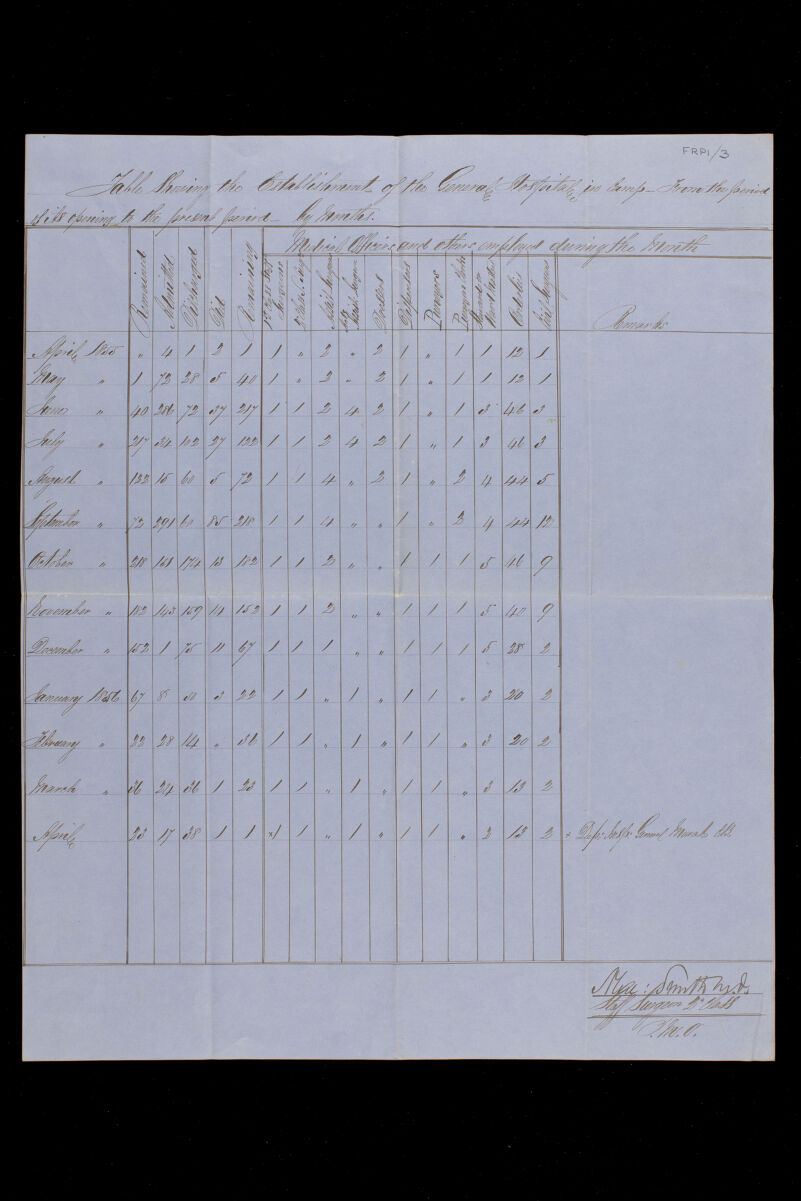 FRP1/3
Table Shewing the Establishment of the General Hospital in Camp - From the period
of its opening to the present period by Months.
Medical Officers and others employed during the Month
Remained Admitted Discharged Died Remaining 1st Class Staff Surgeons 2nd Class Staff Assist Surgeons Dressers Dispensers Purveyors Purveyors Clerks Ward Masters Orderlies Civil Surgeons Remarks
April 1855 " 4 1 2 1 1 " 2 " 2 1 " 1 1 12 1
May " 1 72 28 5 40 1 " 2 " 2 1 " 1 1 12 1
June " 40 286 72 37 217 1 1 2 4 2 1 " 1 3 46 3
July " 217 34 102 27 122 1 1 2 4 2 1 " 1 3 46 3
August " 122 15 60 5 72 1 1 4 " 2 1 " 2 4 44 5
September " 72 291 60 85 218 1 1 4 " " 1 " 2 4 44 12
October " 218 151 174 13 182 1 1 2 " " 1 1 1 5 46 9
November " 182 143 159 14 152 1 1 2 " " 1 1 1 5 40 9
December " 152 1 75 11 67 1 1 1 " " 1 1 1 5 28 2
January 1856 67 8 50 3 22 1 1 " 1 " 1 1 " 3 20 2
February " 22 28 14 " 36 1 1 " 1 " 1 1 " 3 20 2
March " 36 24 36 1 23 1 1 " 1 " 1 1 " 3 13 2
April 23 17 38 1 1 ×1 1 " 1 " 1 1 " 2 13 2 × Depy Inspr General Mouat CB.
Smith M.D.
Staff Surgeon 2nd Class
P.M.O.